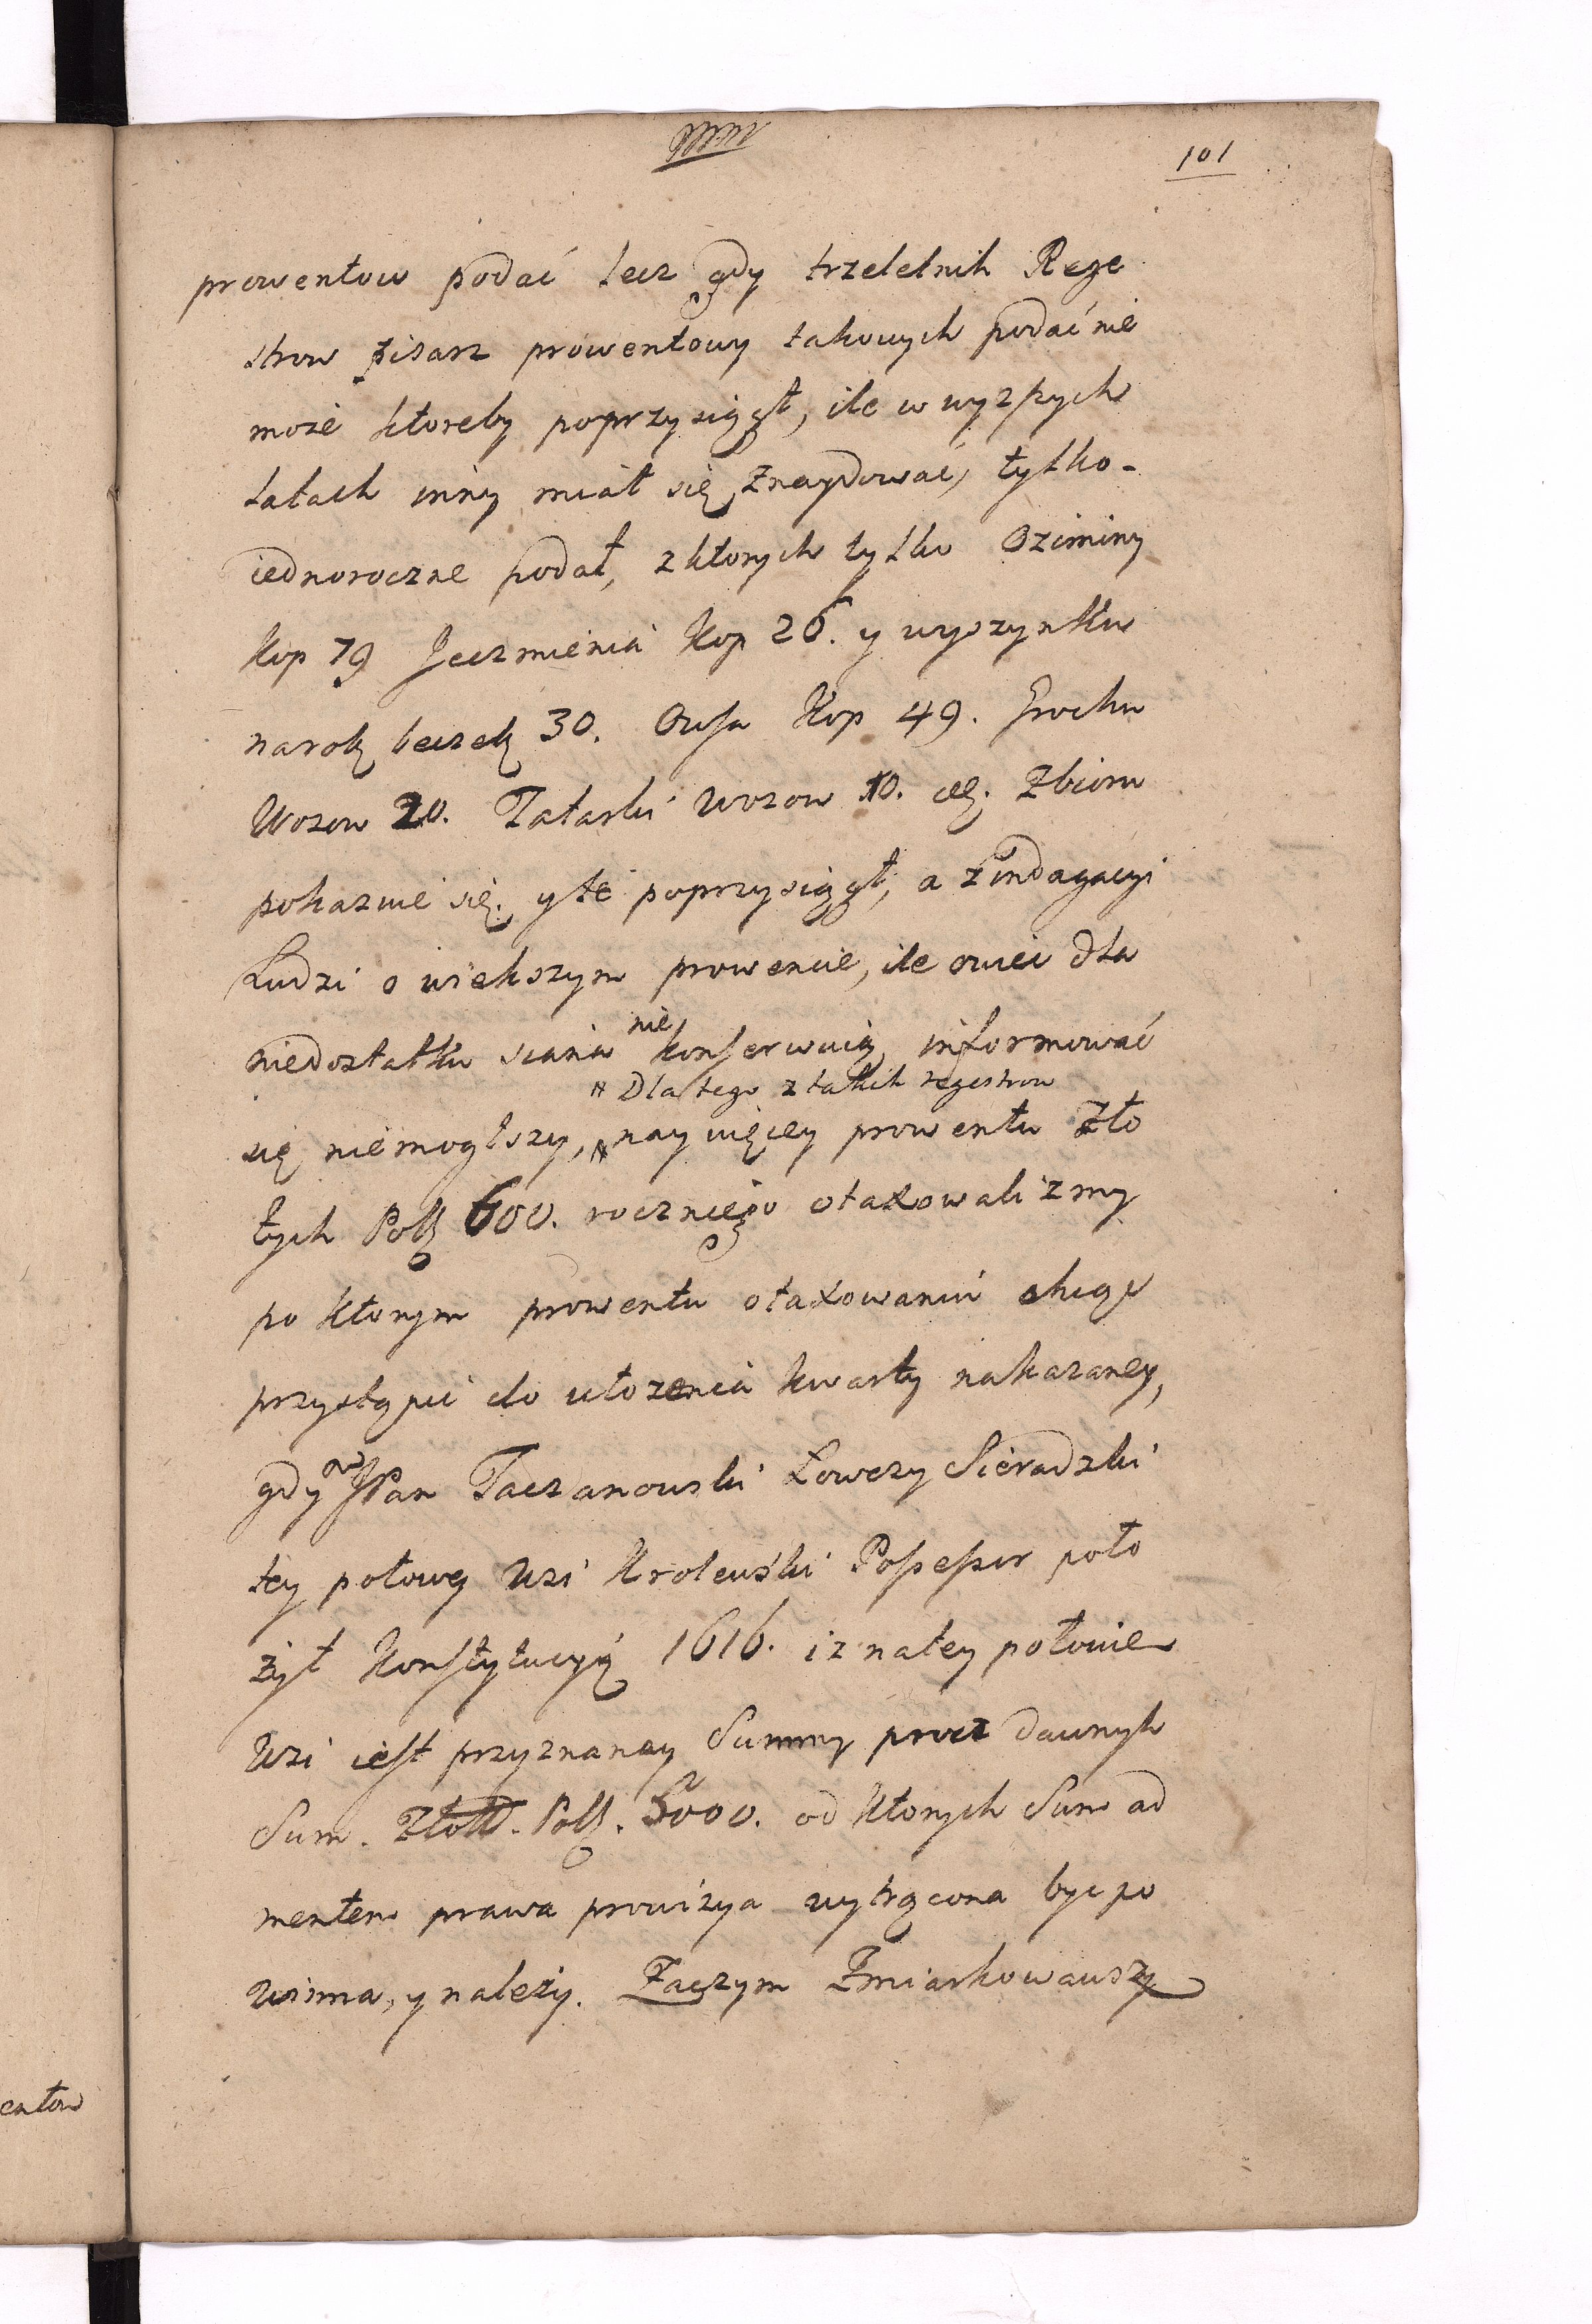 101
prowentow podać lecz gdy trzeletnih Reze
strow pisarz prowentowy takowych podać nie
może ktoreby poprzysiągł, ile w wyzpych
latach inny miał się znaydować, tylko-
iednoroczne podał, z ktorych tylko Oziminy
Kop 79 Jeczmienia Kop 26. y wyszynku
na rok beczek 30. Owsa Kop 49. Grochu
Wozow 20. Tatarki Wozow 10. Zbioru
pokazuie się. y te poprzysiągł, a z indagacyi
Ludzi o wiekszym prowencie, ile owiec dla
niedostatku siana nie konserwuią, informować
# Dla tego z takih regestrow
się niemogłszy, # naywięcey prowentu Zło
tych Pol. 600. roczniego otaxowalizmy
po ktorym prowentu otaxowaniu chcąc
przystąpić do ułozenia kwarty nakazaney,
gdy JPan Taczanowski Łowczy Sieradzki
tey połowy Wsi Krolewski Possessor poło
żył Konstytucyą 1616. iz na tey połowie
Wsi iest przyznaney Summy procz dawnyh
Sum. Złott. Pol. 5000. od ktorych Sum ad
mentem prawa prowizya wytrącona byc po
winna, y należy. Zaczym Zmiarkowawszy
entow